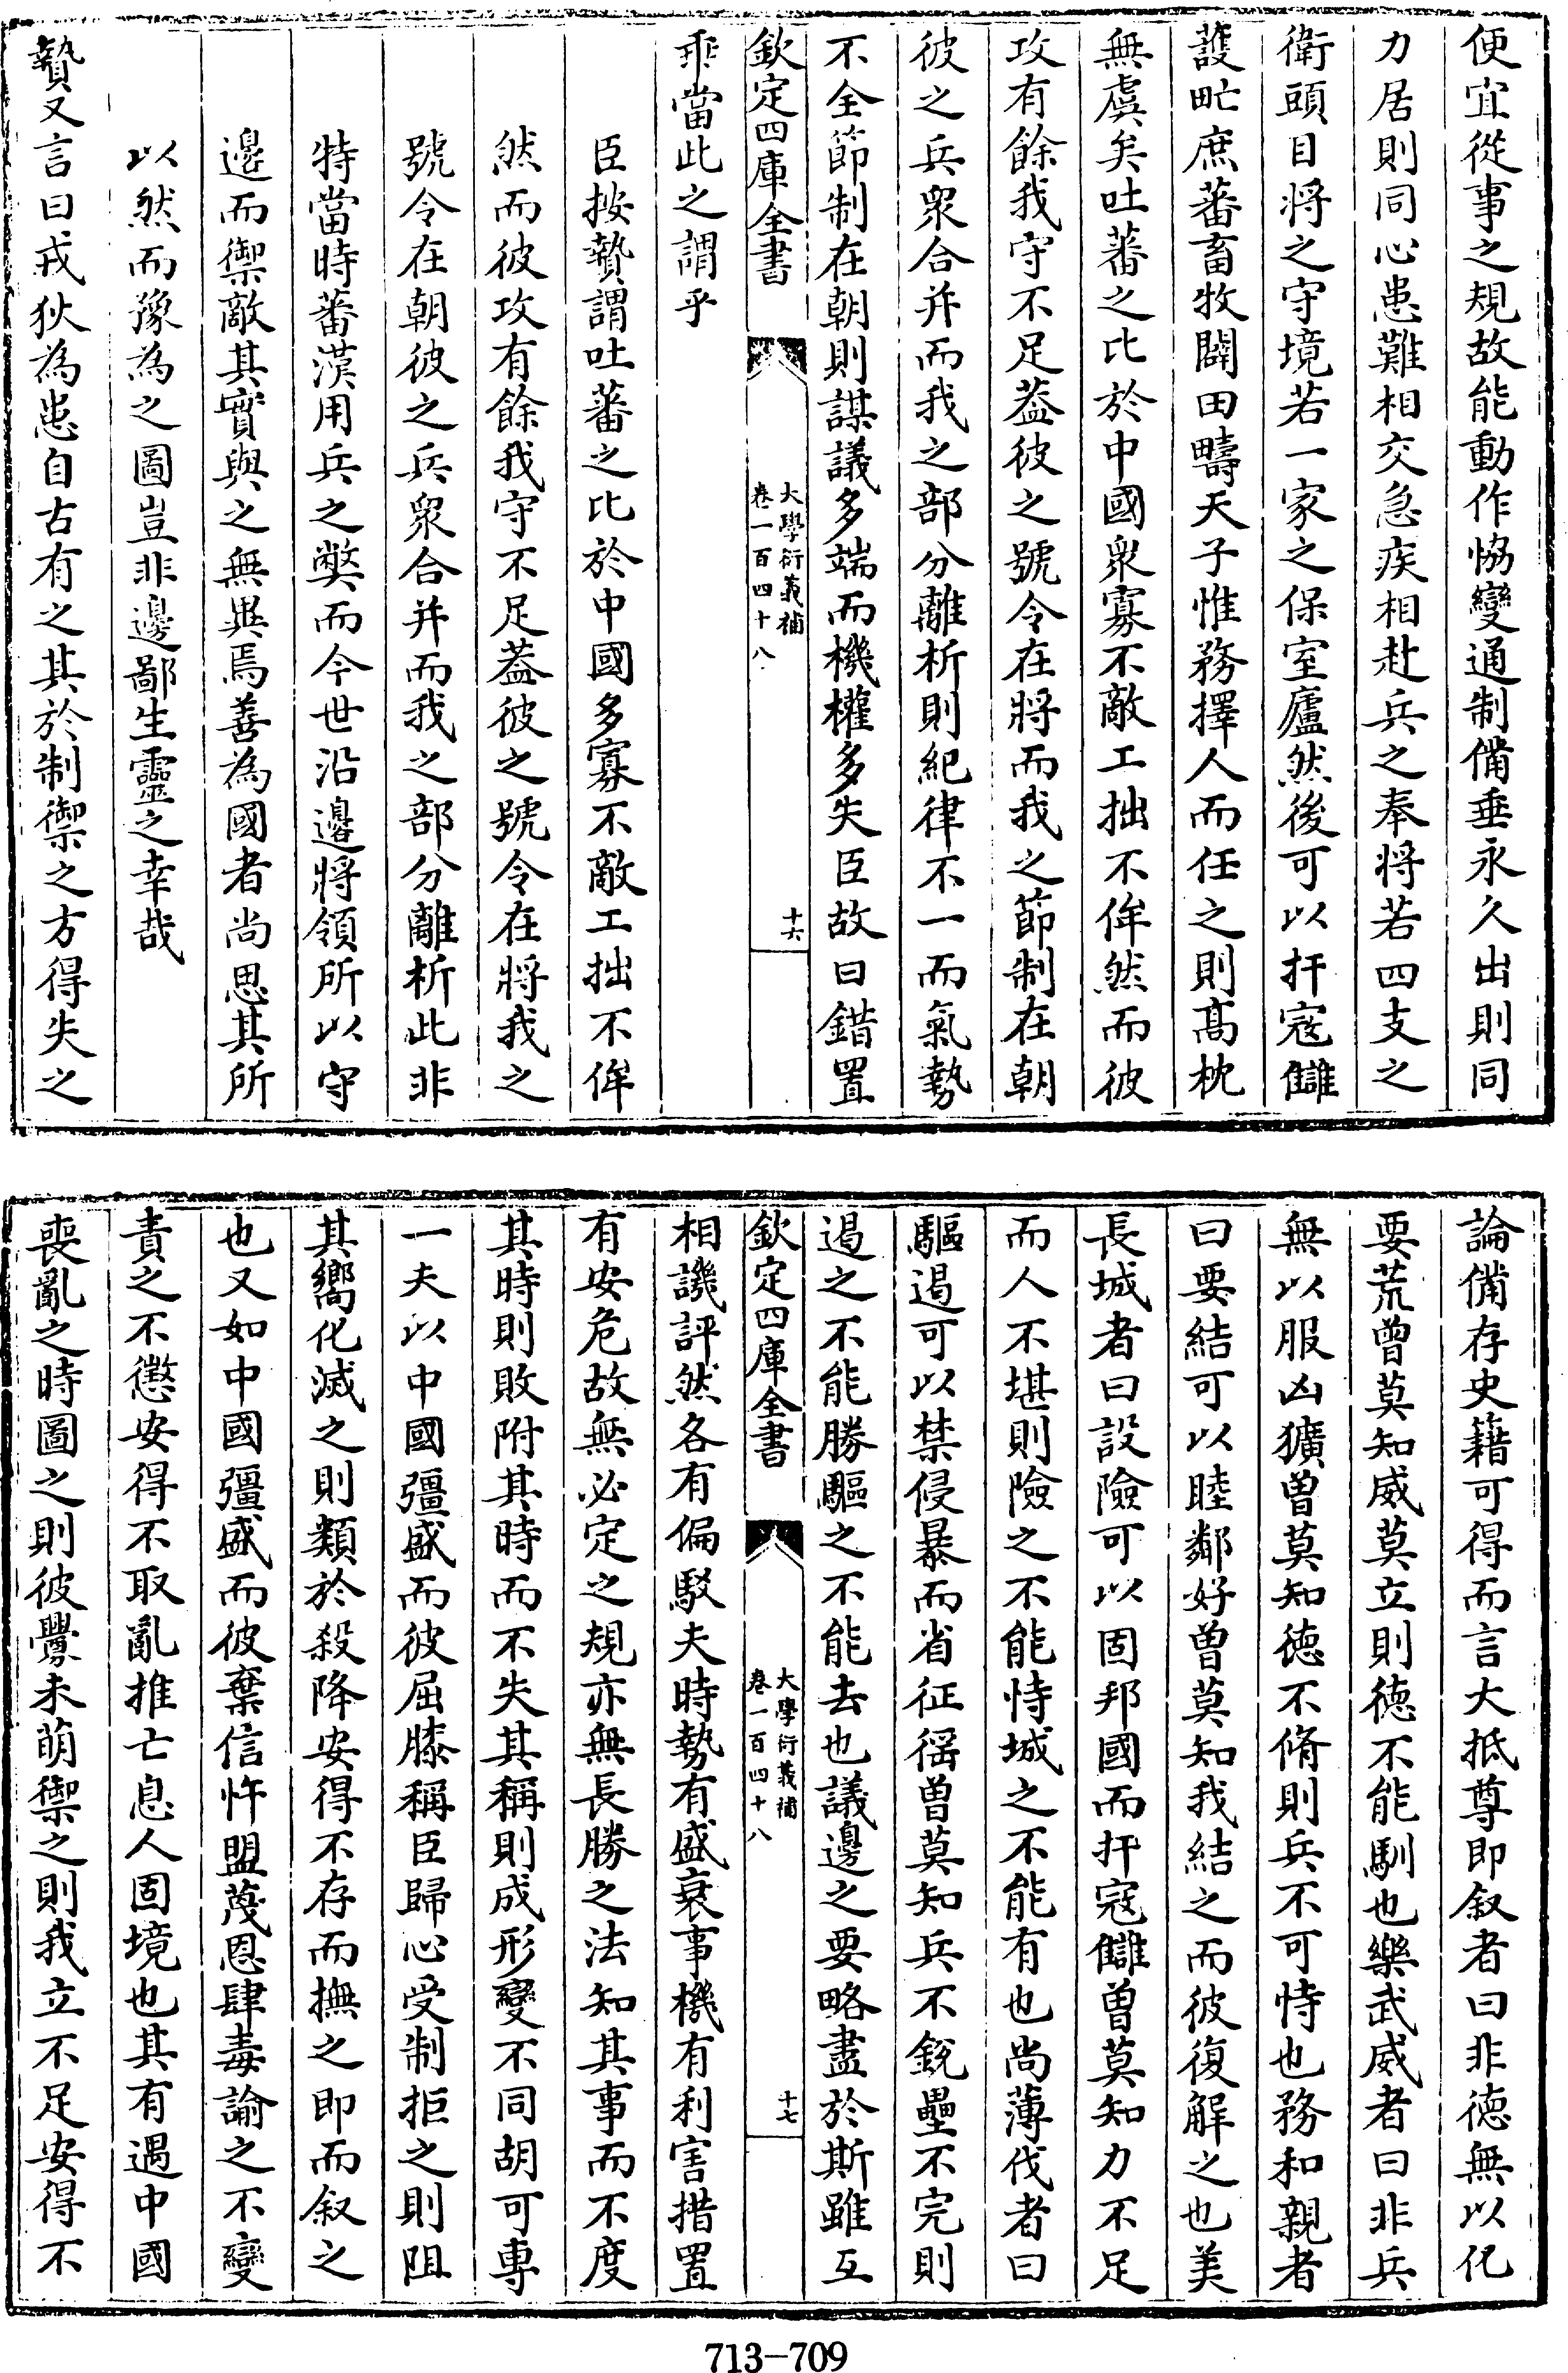 便宜從事之規故能動作恊變通制備垂永久出則同
力居則同心患難相交急疾相赴兵之奉將若四支之
衛頭目將之守境若一家之保室廬然後可以扞寇讎
䕶甿庶蕃畜牧闢田疇天子惟務擇人而任之則髙枕
無虞矣吐蕃之比於中國衆寡不敵工拙不侔然而彼
攻有餘我守不足葢彼之號令在將而我之節制在朝
彼之兵衆合并而我之部分離析則紀律不一而氣勢
不全節制在朝則謀議多端而機權多失臣故曰錯置
欽定四庫全書
大學衍義補
卷一百四十八
十六
乖當此之謂乎
臣按贄謂吐蕃之比於中國多寡不敵工拙不侔
然而彼攻有餘我守不足葢彼之號令在將我之
號令在朝彼之兵衆合并而我之部分離析此非
特當時蕃漢用兵之獘而今世沿邊將領所以守
邊而禦敵其實與之無異焉善為國者尚思其所
以然而豫為之圖豈非邊鄙生靈之幸哉
贄又言曰戎狄為患自古有之其於制禦之方得失之
論備存史籍可得而言大抵尊即叙者曰非徳無以化
要荒曾莫知威莫立則徳不能馴也樂武威者曰非兵
無以服凶獷曾莫知徳不脩則兵不可恃也務和親者
曰要結可以睦鄰好曾莫知我結之而彼復解之也美
長城者曰設險可以固邦國而扞寇讎曾莫知力不足
而人不堪則險之不能恃城之不能有也尚薄伐者曰
驅遏可以禁侵暴而省征徭曾莫知兵不銳壘不完則
遏之不能勝驅之不能去也議邊之要略盡於斯雖互
欽定四庫全書
大學衍義補
卷一百四十八
十七
相譏評然各有偏駁夫時勢有盛衰事機有利害措置
有安危故無必定之規亦無長勝之法知其事而不度
其時則敗附其時而不失其稱則成形變不同胡可專
一夫以中國彊盛而彼屈膝稱臣歸心受制拒之則阻
其嚮化滅之則類於殺降安得不存而撫之即而叙之
也又如中國彊盛而彼棄信忤盟蔑恩肆毒諭之不變
責之不懲安得不取亂推亡息人固境也其有遇中國
喪亂之時圖之則彼釁未萌禦之則我立不足安得不
713-709